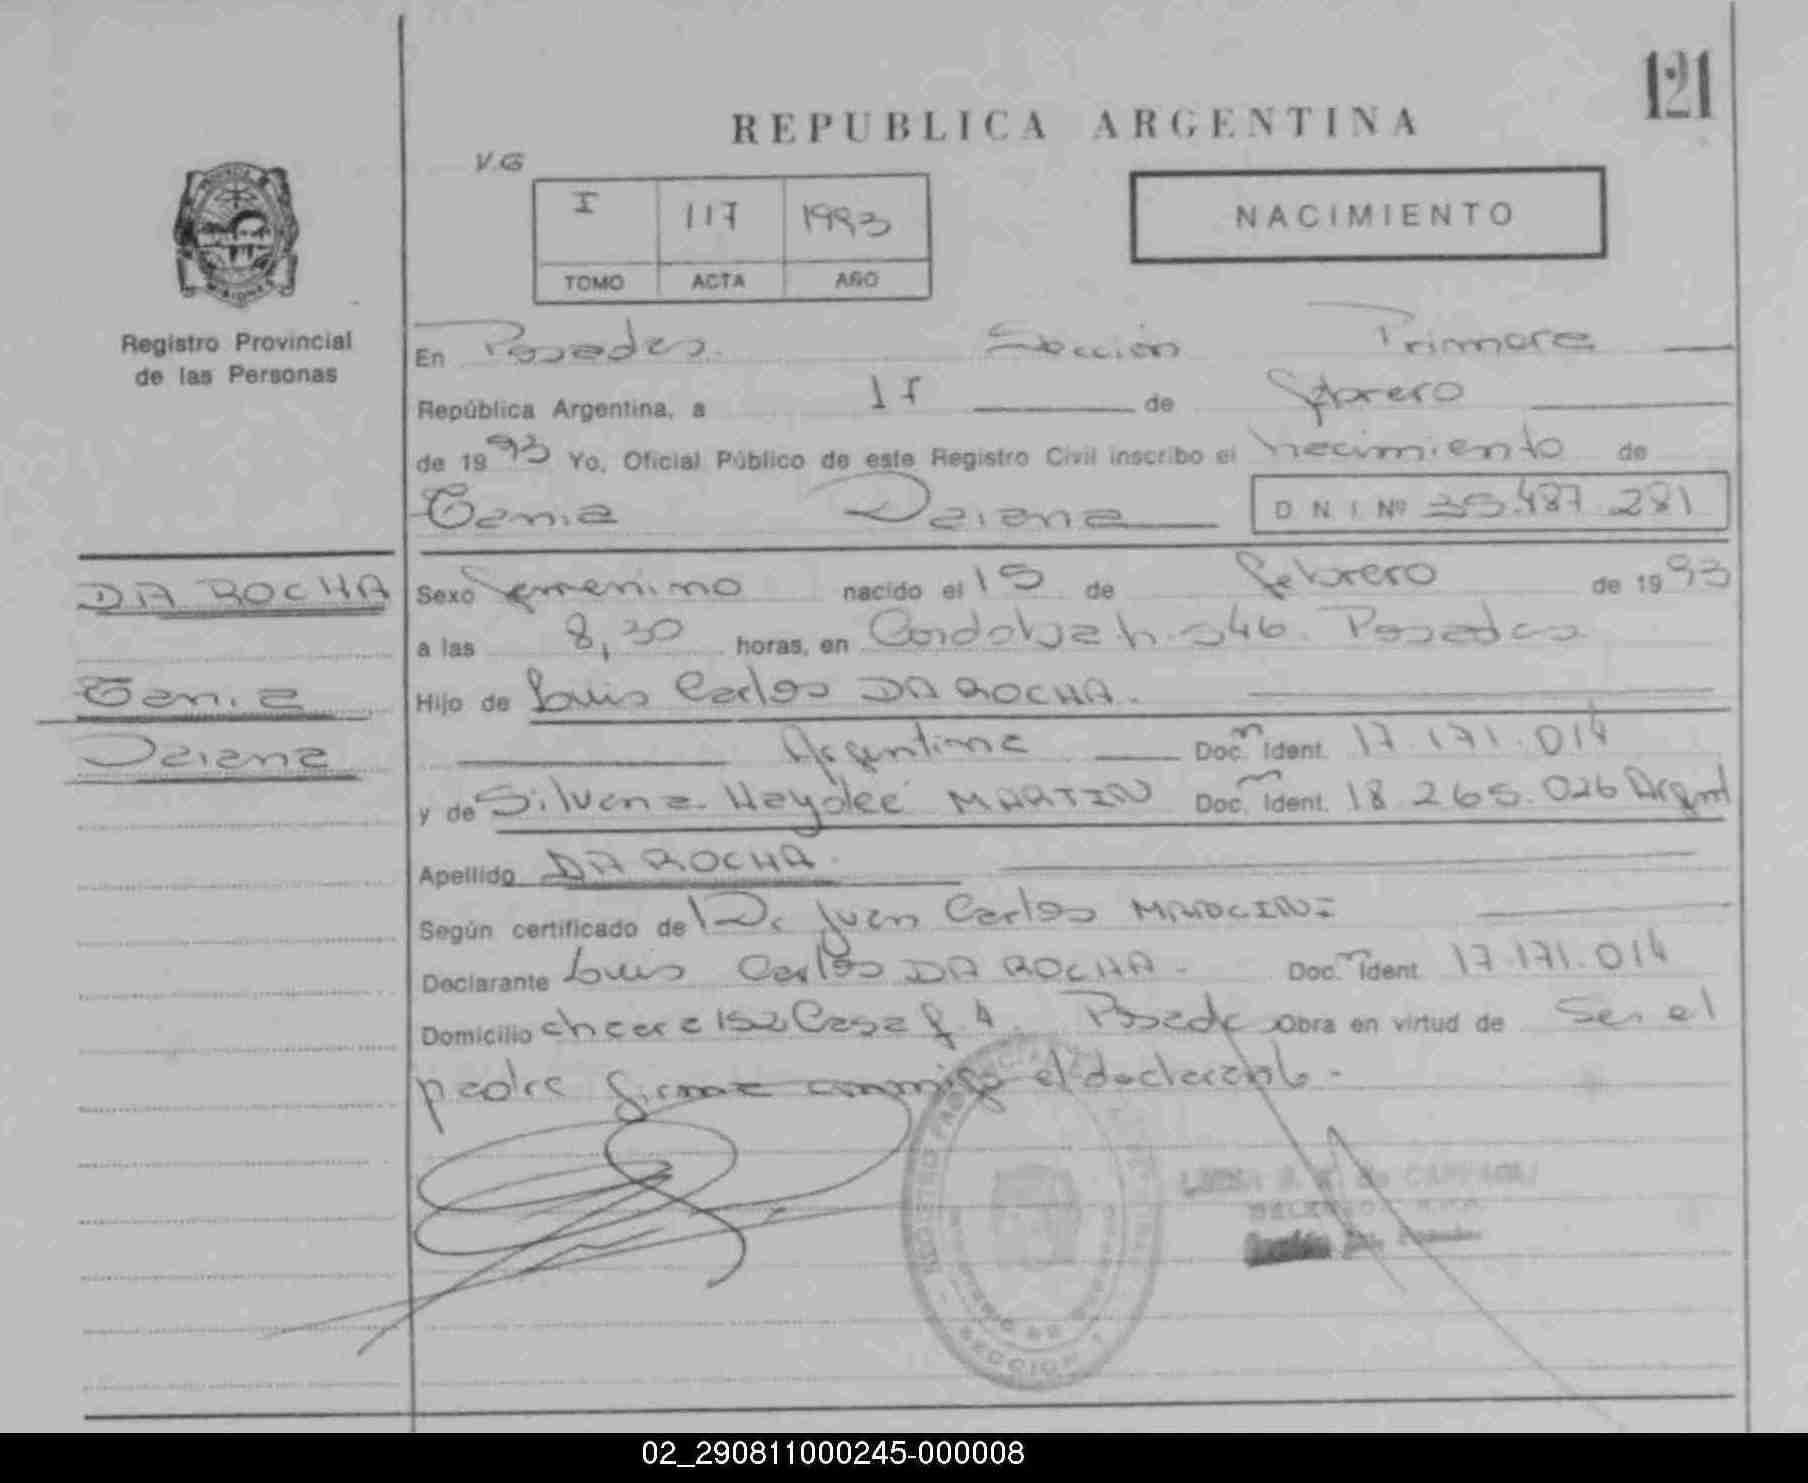 121
REPUBLICA ARGENTINA
V.G
I 117 1993
TOMO ACTA AÑO
NACIMIENTO
MISIONES
Registro Provincial
de las Personas
En Posadas. Sección Primera
República Argentina, a 17 de febrero
de 1993 Yo, Oficial Público de este Registro Civil inscribo el nacimiento de
Tania Daiana D N I Nº 35.487.281
DA ROCHA
Tania
Daiana
Sexo femenino nacido el 15 de febrero de 1993
a las 8,30 horas, en Cordoba n. 546. Posadas
Hijo de Luis Carlos DA ROCHA.
Argentina Doc. Ident. 17.171.014
y de Silvana Haydée MARTIN Doc. Ident. 18.265.026 Argent
Apellido DA ROCHA.
Según certificado de Dr Juan Carlos
Declarante Luis Carlos DA ROCHA. Doc. Ident 17.171.014
Domicilio chacra 152 Casa f. 4. Posadas Obra en virtud de Ser el
padre firma conmigo el declarante.
REGISTRO PROVINCIAL
SECCION 1
02_290811000245-000008